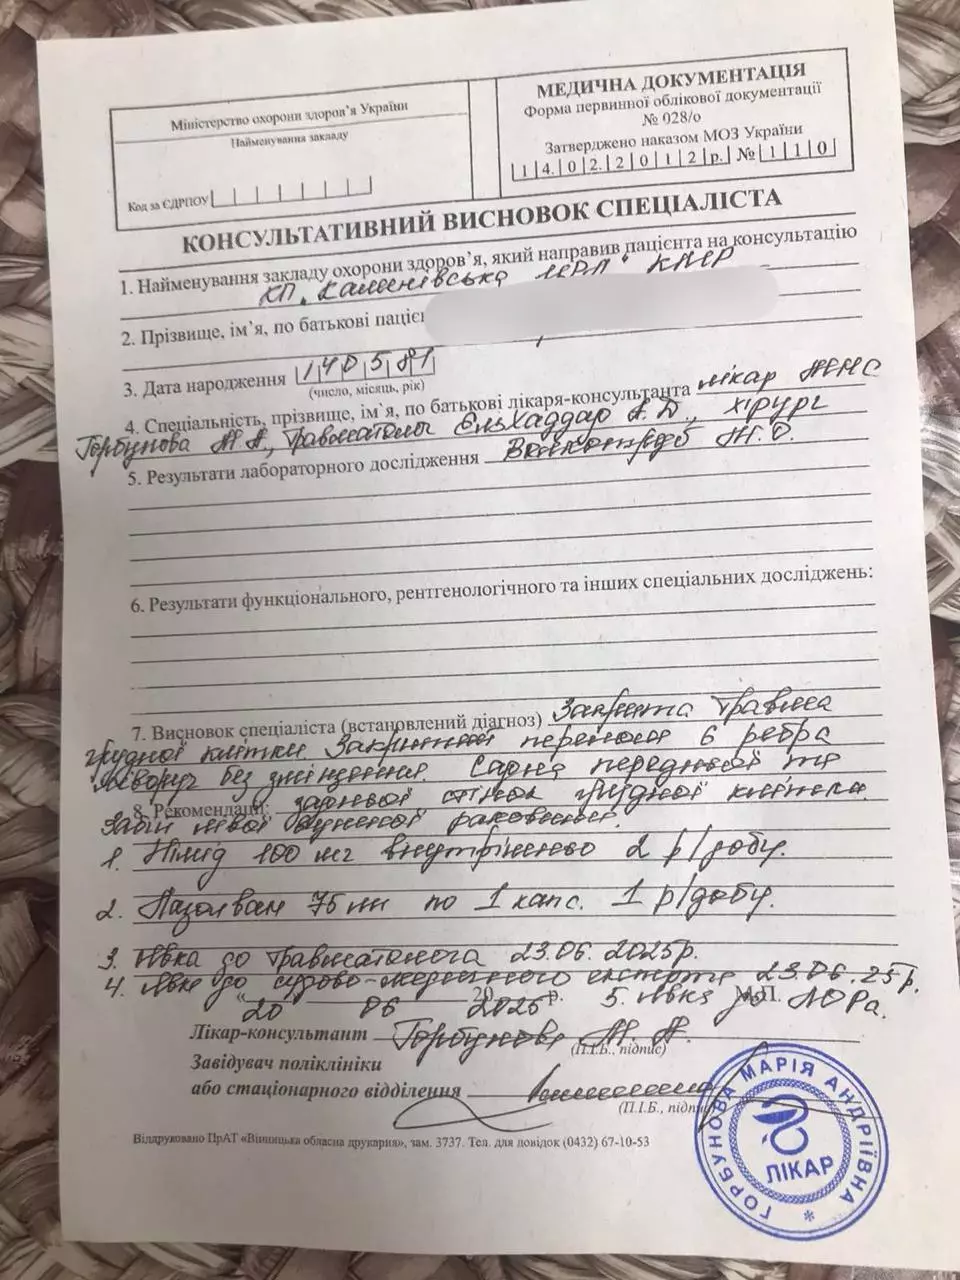 Міністерство охорони здоров'я України
Найменування закладу
Код за ЄДРПОУ
МЕДИЧНА ДОКУМЕНТАЦІЯ
Форма первинної облікової документації
№ 028/о
Затверджено наказом МОЗ України
14.02.2012р. № 110
КОНСУЛЬТАТИВНИЙ ВИСНОВОК СПЕЦІАЛІСТА
1. Найменування закладу охорони здоров'я, який направив пацієнта на консультацію
КП. КМР
2. Прізвище, ім'я, по батькові паціє
3. Дата народження 140581
(число, місяць, рік)
4. Спеціальність, прізвище, ім`я, по батькові лікаря-консультанта лікар
Горбунова М.А., травматолог Ельхаддар А.Д., хірург
5. Результати лабораторного дослідження
6. Результати функціонального, рентгенологічного та інших спеціальних досліджень:
7. Висновок спеціаліста (встановлений діагноз) Закрита травма
грудної клітки. Закритий перелом 6 ребра
ліворуч без зміщення. передньої та
8. Рекомендації: стінок грудної клітки.
Забій лівої вушної раковини.
1. Німід 100 мг внутрішньо 2 р/добу.
2. 75 мг по 1 капс. 1 р/добу.
3. Явка до травматолога 23.06.2025р.
4. Явка до судово-медичного експерта 23.06.25р.
" 20 " 06 2025 р. 5. Явка до ЛОРа. М.П.
Лікар-консультант Горбунова М.А.
(П.І.Б., підпис)
Завідувач поліклініки
або стаціонарного відділення
(П.І.Б., підпис)
Віддруковано ПрАТ «Вінницька обласна друкарня», зам. 3737. Тел. для довідок (0432) 67-10-53
ГОРБУНОВА МАРІЯ АНДРІЇВНА *
ЛІКАР